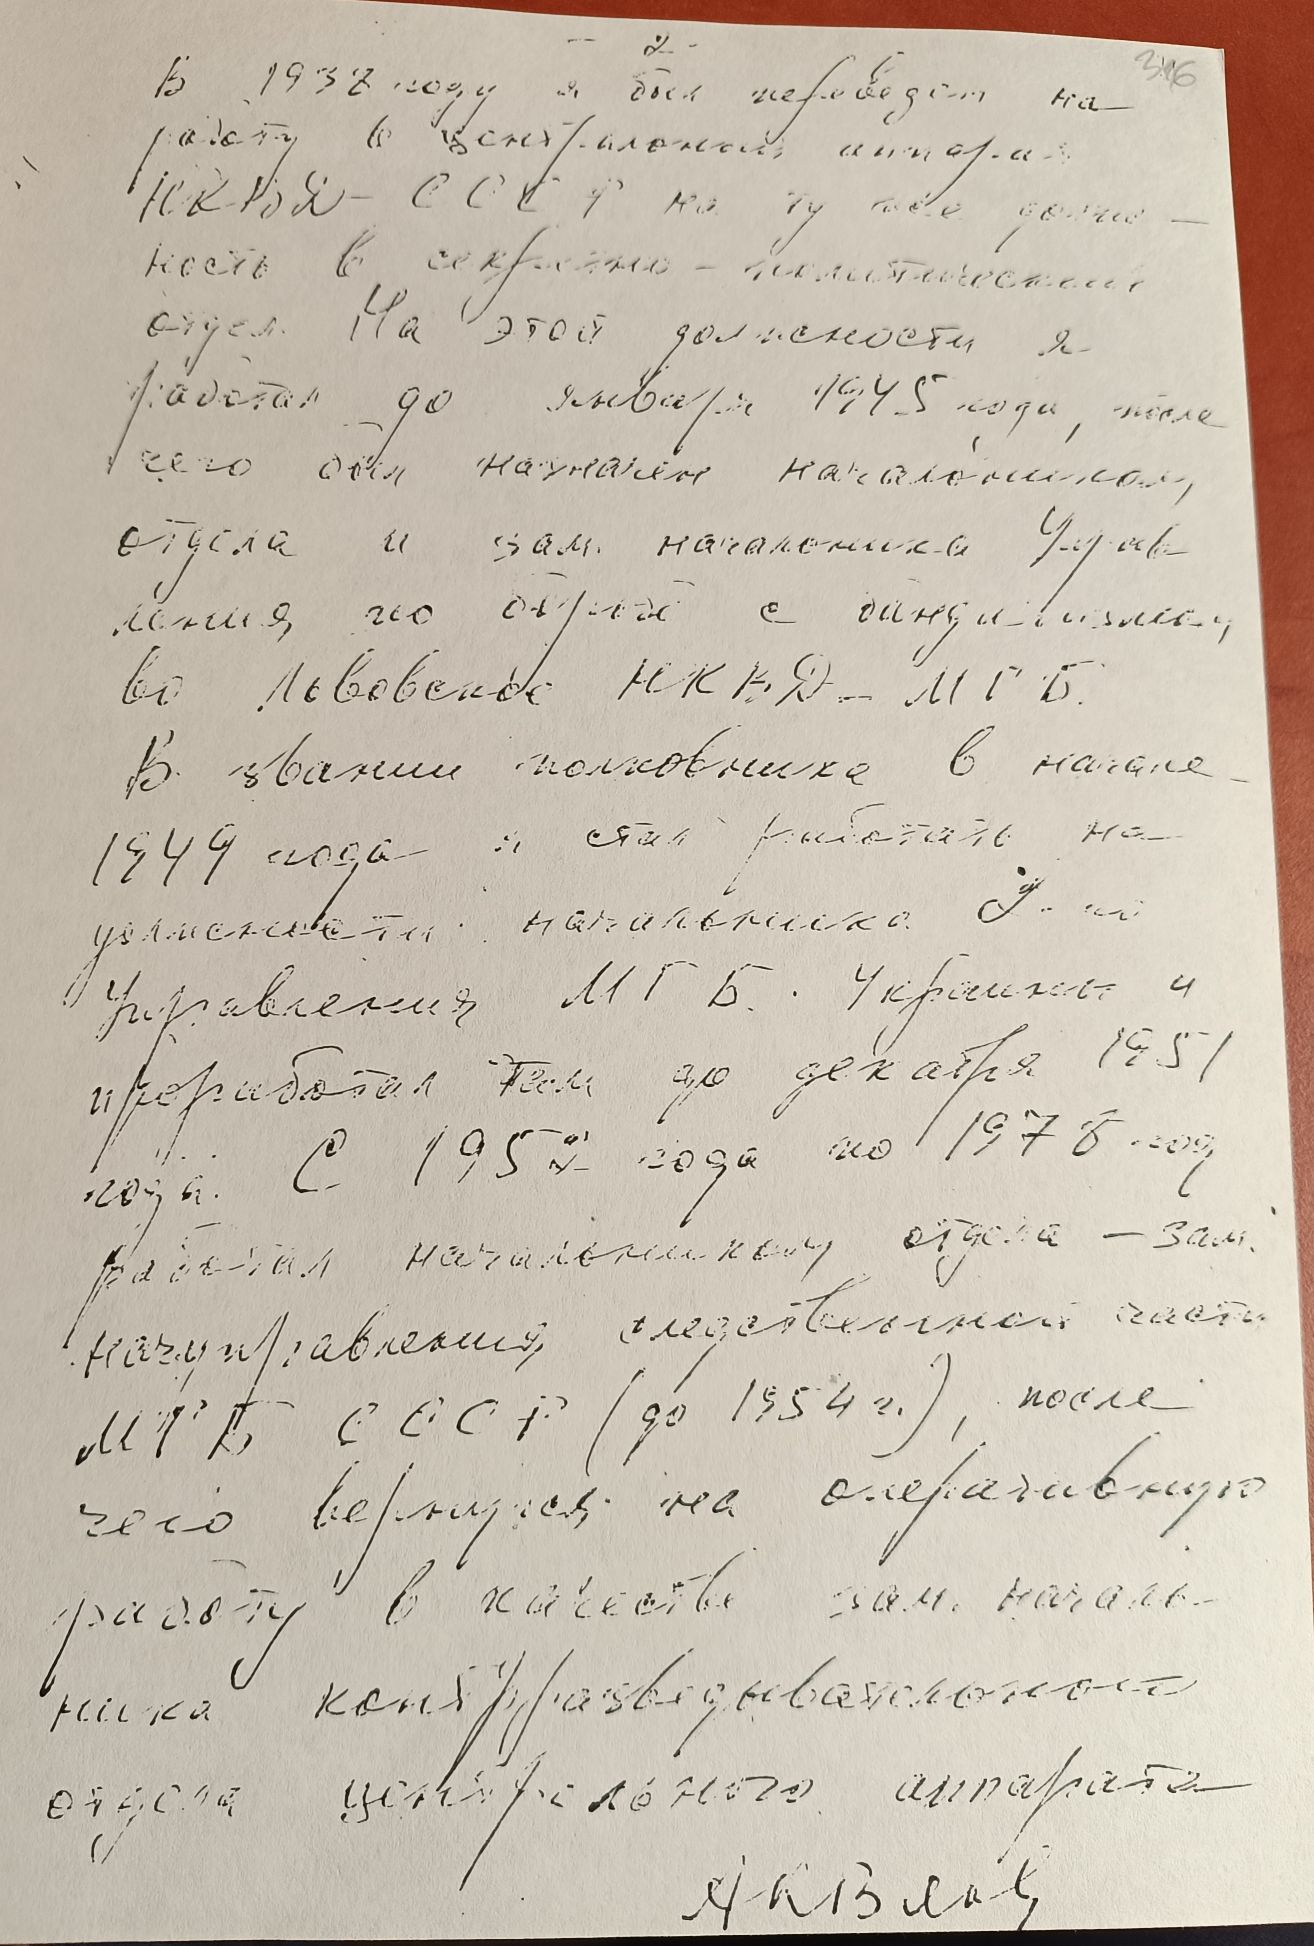 - 2 -
346
В 1937 году я был переведен на
работу в центральный аппарат
НКВД СССР на ту же долж-
ность в секретно-политический
отдел. На этой должности я
работал до января 1945 года, после
чего был назначен начальником
отдела и зам. начальника Управ
ления по борьбе с бандитизмом
во Львовское НКВД - МГБ.
В звании полковника в начале
1949 года я стал работать на
должности начальника 2-го
Управления МГБ Украины и
проработал там до декабря 1951
года. С 1952 года по 1978 год
работал начальником отдела - зам.
начуправления следственной части
МГБ СССР (до 1954 г.), после
чего вернулся на оперативную
работу в качестве зам. началь-
ника контрразведывательного
отдела центрального аппарата